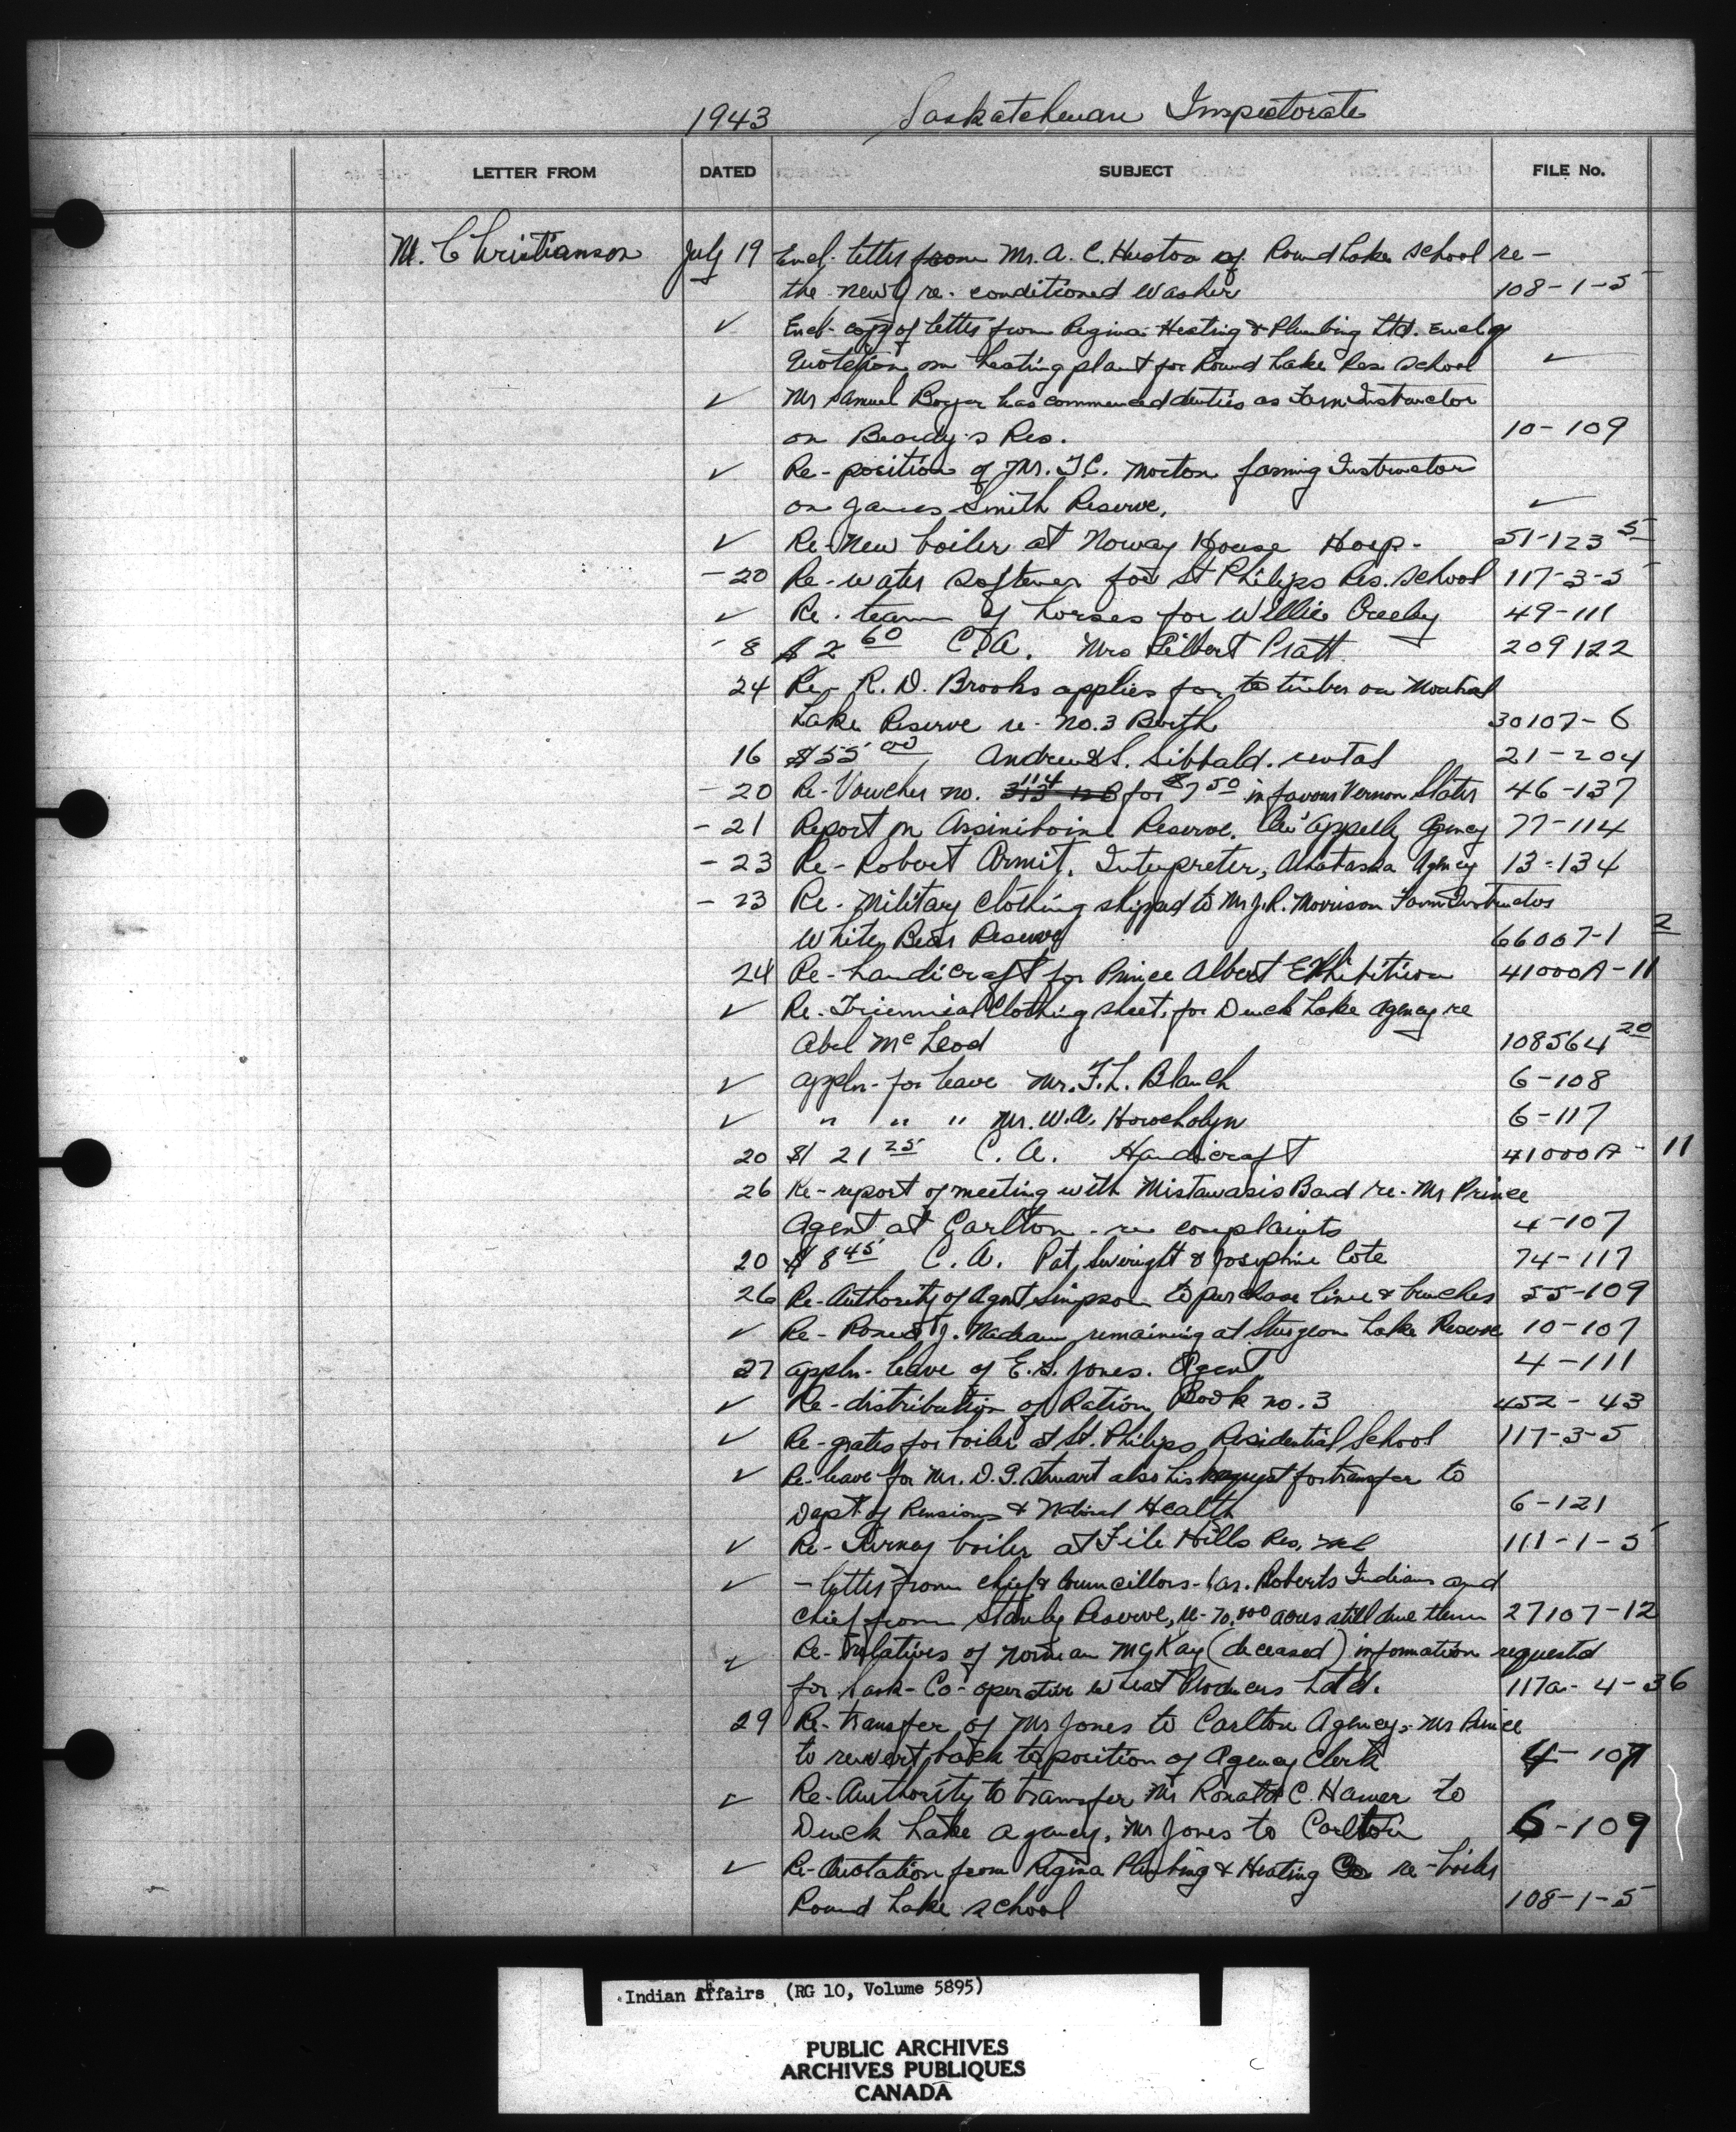 1943 Saskatchewan Inspectorate
LETTER FROM DATED SUBJECT FILE No.
M. Christianson July 19 Encl. letter from Mr. A. C. Huston of Round Lake School re -
the newly re-conditioned Washer 108-1-5
✓ Encl. copy of letter from Regina Heating & Plumbing Ltd. Encl'g
Quotation on heating plant for Round Lake Res. School ✓
✓ Mr Samuel Boyer has commenced duties as Farm Instructor
on Beardy's Res. 10-109
✓ Re-position of Mr. T.C. Morton farming Instructor
on James Smith Reserve. ✓
✓ Re-New boiler at Norway House Hosp- 51-123 5
- 20 Re-water softener for St Philips Res. School 117-3-5
✓ Re. team of horses for Willie Creeley 49-111
- 8 $2 60 C.A. Mrs Gilbert Pratt 209122
24 Re- R. D. Brooks applies for to timber on Montreal
Lake Reserve re- No.3 Berth 30107-6
16 $55 00 Andrew S. Sibbald. rental 21-204
- 20 Re-Voucher no. 114 for $7 50 in favour Vernon Slater 46-137
- 21 Report on Assiniboine Reserve. Qu'appelle Agency 77-114
- 23 Re-Robert Armit, Interpreter, Athabaska Agency 13-134
- 23 Re-Military Clothing shipped to Mr J.R. Morrison Farm Instructor
White Bear Reserve 66007-1 2
24 Re-handicraft for Prince Albert Exhibition 41000A-11
✓ Re-Triennial Clothing sheet, for Duck Lake Agency re
Abel McLeod 108564 20
✓ appln-for leave Mr. F.L. Blanch 6-108
✓ " " " Mr. W.A. 6-117
20 $121 25 C. A. Handicraft 41000A-11
26 Re-report of meeting with Mistawasis Band re. Mr Prince
Agent at Carlton - re complaints 4-107
20 $8 45 C. A. Pat Severight & Josephine Cote 74-117
26 Re-Authority of Agent Simpson to purchase lime & brushes 55-109
✓ Re- J. Nadeau remaining at Sturgeon Lake Reserve 10-107
27 appln-leave of E. S. Jones. Agent 4-111
✓ Re-distribution of Ration Book no. 3 452-43
✓ Re-grates for boiler at St. Philips Residential School 117-3-5
✓ Re-leave for Mr. D. G. Stewart also his request for transfer to
Dept of Pensions & National Health 6-121
✓ Re- boiler at File Hills Res. 111-1-5
✓ - letter from Chief & Councillors- Roberts Indians and
Chief from Stanley Reserve, re-70,000 acres still due them 27107-12
✓ Re-relatives of Norman McKay (deceased) information requested
for Sask-Co-operative Wheat Producers Ltd. 117a-4-36
29 Re-transfer of Mr Jones to Carlton Agency, Mr Prince
to revert back to position of Agency Clerk 4-107
✓ Re-Authority to transfer Mr Ronald C. Hamer to
Duck Lake Agency, Mr Jones to Carlton 6-109
✓ Re-Quotation from Regina Plumbing & Heating Co re-boiler
Round Lake School 108-1-5
Indian Affairs (RG 10, Volume 5895)
PUBLIC ARCHIVES
ARCHIVES PUBLIQUES
CANADA